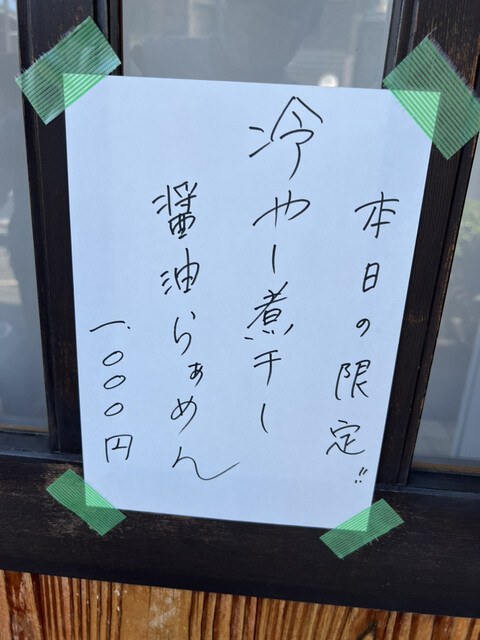 本日の限定!!
冷やし煮干し
醤油らぁめん
一.〇〇〇円